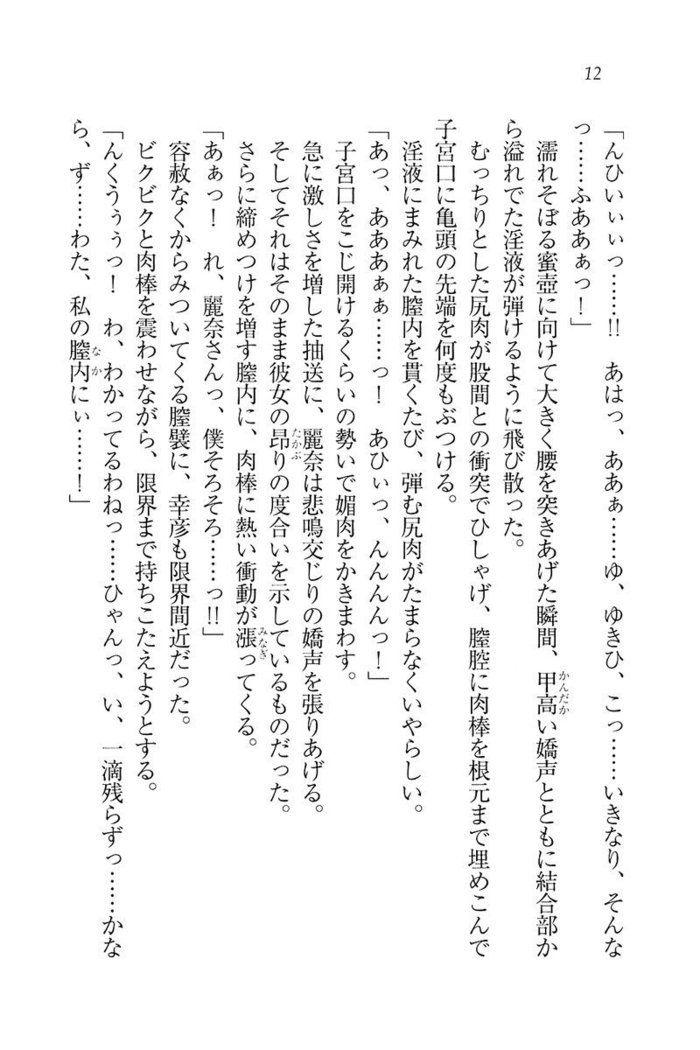 12
「んひいぃぃっ……!!　あはっ、ああぁ……ゆ、ゆきひ、こっ……いきなり、そんな
っ……ふああぁっ！」
濡れそぼる蜜壺に向けて大きく腰を突きあげた瞬間、甲高い嬌声とともに結合部か
ら溢れでた淫液が弾けるように飛び散った。
むっちりとした尻肉が股間との衝突でひしゃげ、膣腔に肉棒を根元まで埋めこんで
子宮口に亀頭の先端を何度もぶつける。
淫液にまみれた膣内を貫くたび、弾む尻肉がたまらなくいやらしい。
「あっ、あああぁぁ……っ！　あひぃっ、んんんんっ！」
子宮口をこじ開けるくらいの勢いで媚肉をかきまわす。
急に激しさを増した抽送に、麗奈は悲鳴交じりの嬌声を張りあげる。
そしてそれはそのまま彼女の昂りの度合いを示しているものだった。
さらに締めつけを増す膣内に、肉棒に熱い衝動が漲ってくる。
「あぁっ！　れ、麗奈さんっ、僕そろそろ……っ!!」
容赦なくからみついてくる膣襞に、幸彦も限界間近だった。
ビクビクと肉棒を震わせながら、限界まで持ちこたえようとする。
「んくうぅぅっ！　わ、わかってるわねっ……ひゃんっ、い、一滴残らずっ……かな
ら、ず……わた、私の膣内にぃ……！」